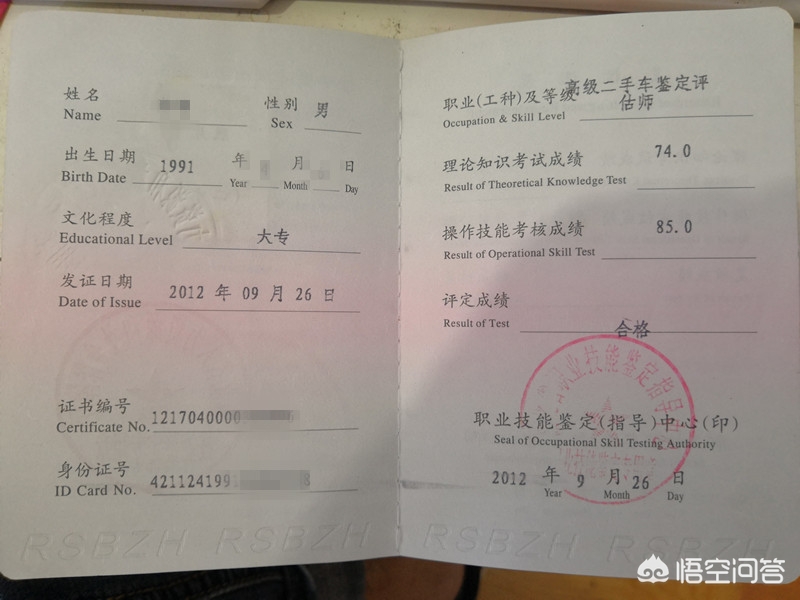 姓名
Name
性别 男
Sex
出生日期 1991 年 月 日
Birth Date Year Month Day
文化程度
Educational Level 大专
发证日期
Date of Issue 2012 年 09 月 26 日
证书编号
Certificate No. 1217040000
身份证号
ID Card No. 4211241991 8
RSBZH RSBZH RSBZH
职业(工种)及等级 高级二手车鉴定评
估师
Occupation & Skill Level
理论知识考试成绩 74.0
Result of Theoretical Knowledge Test
操作技能考核成绩 85.0
Result of Operational Skill Test
评定成绩
Result of Test 合格
职业技能鉴定指导中心
职业技能鉴定(指导)中心(印)
Seal of Occupational Skill Testing Authority
2012 年 9 月 26 日
Year Month Day
RSBZH RSBZH
悟空问答